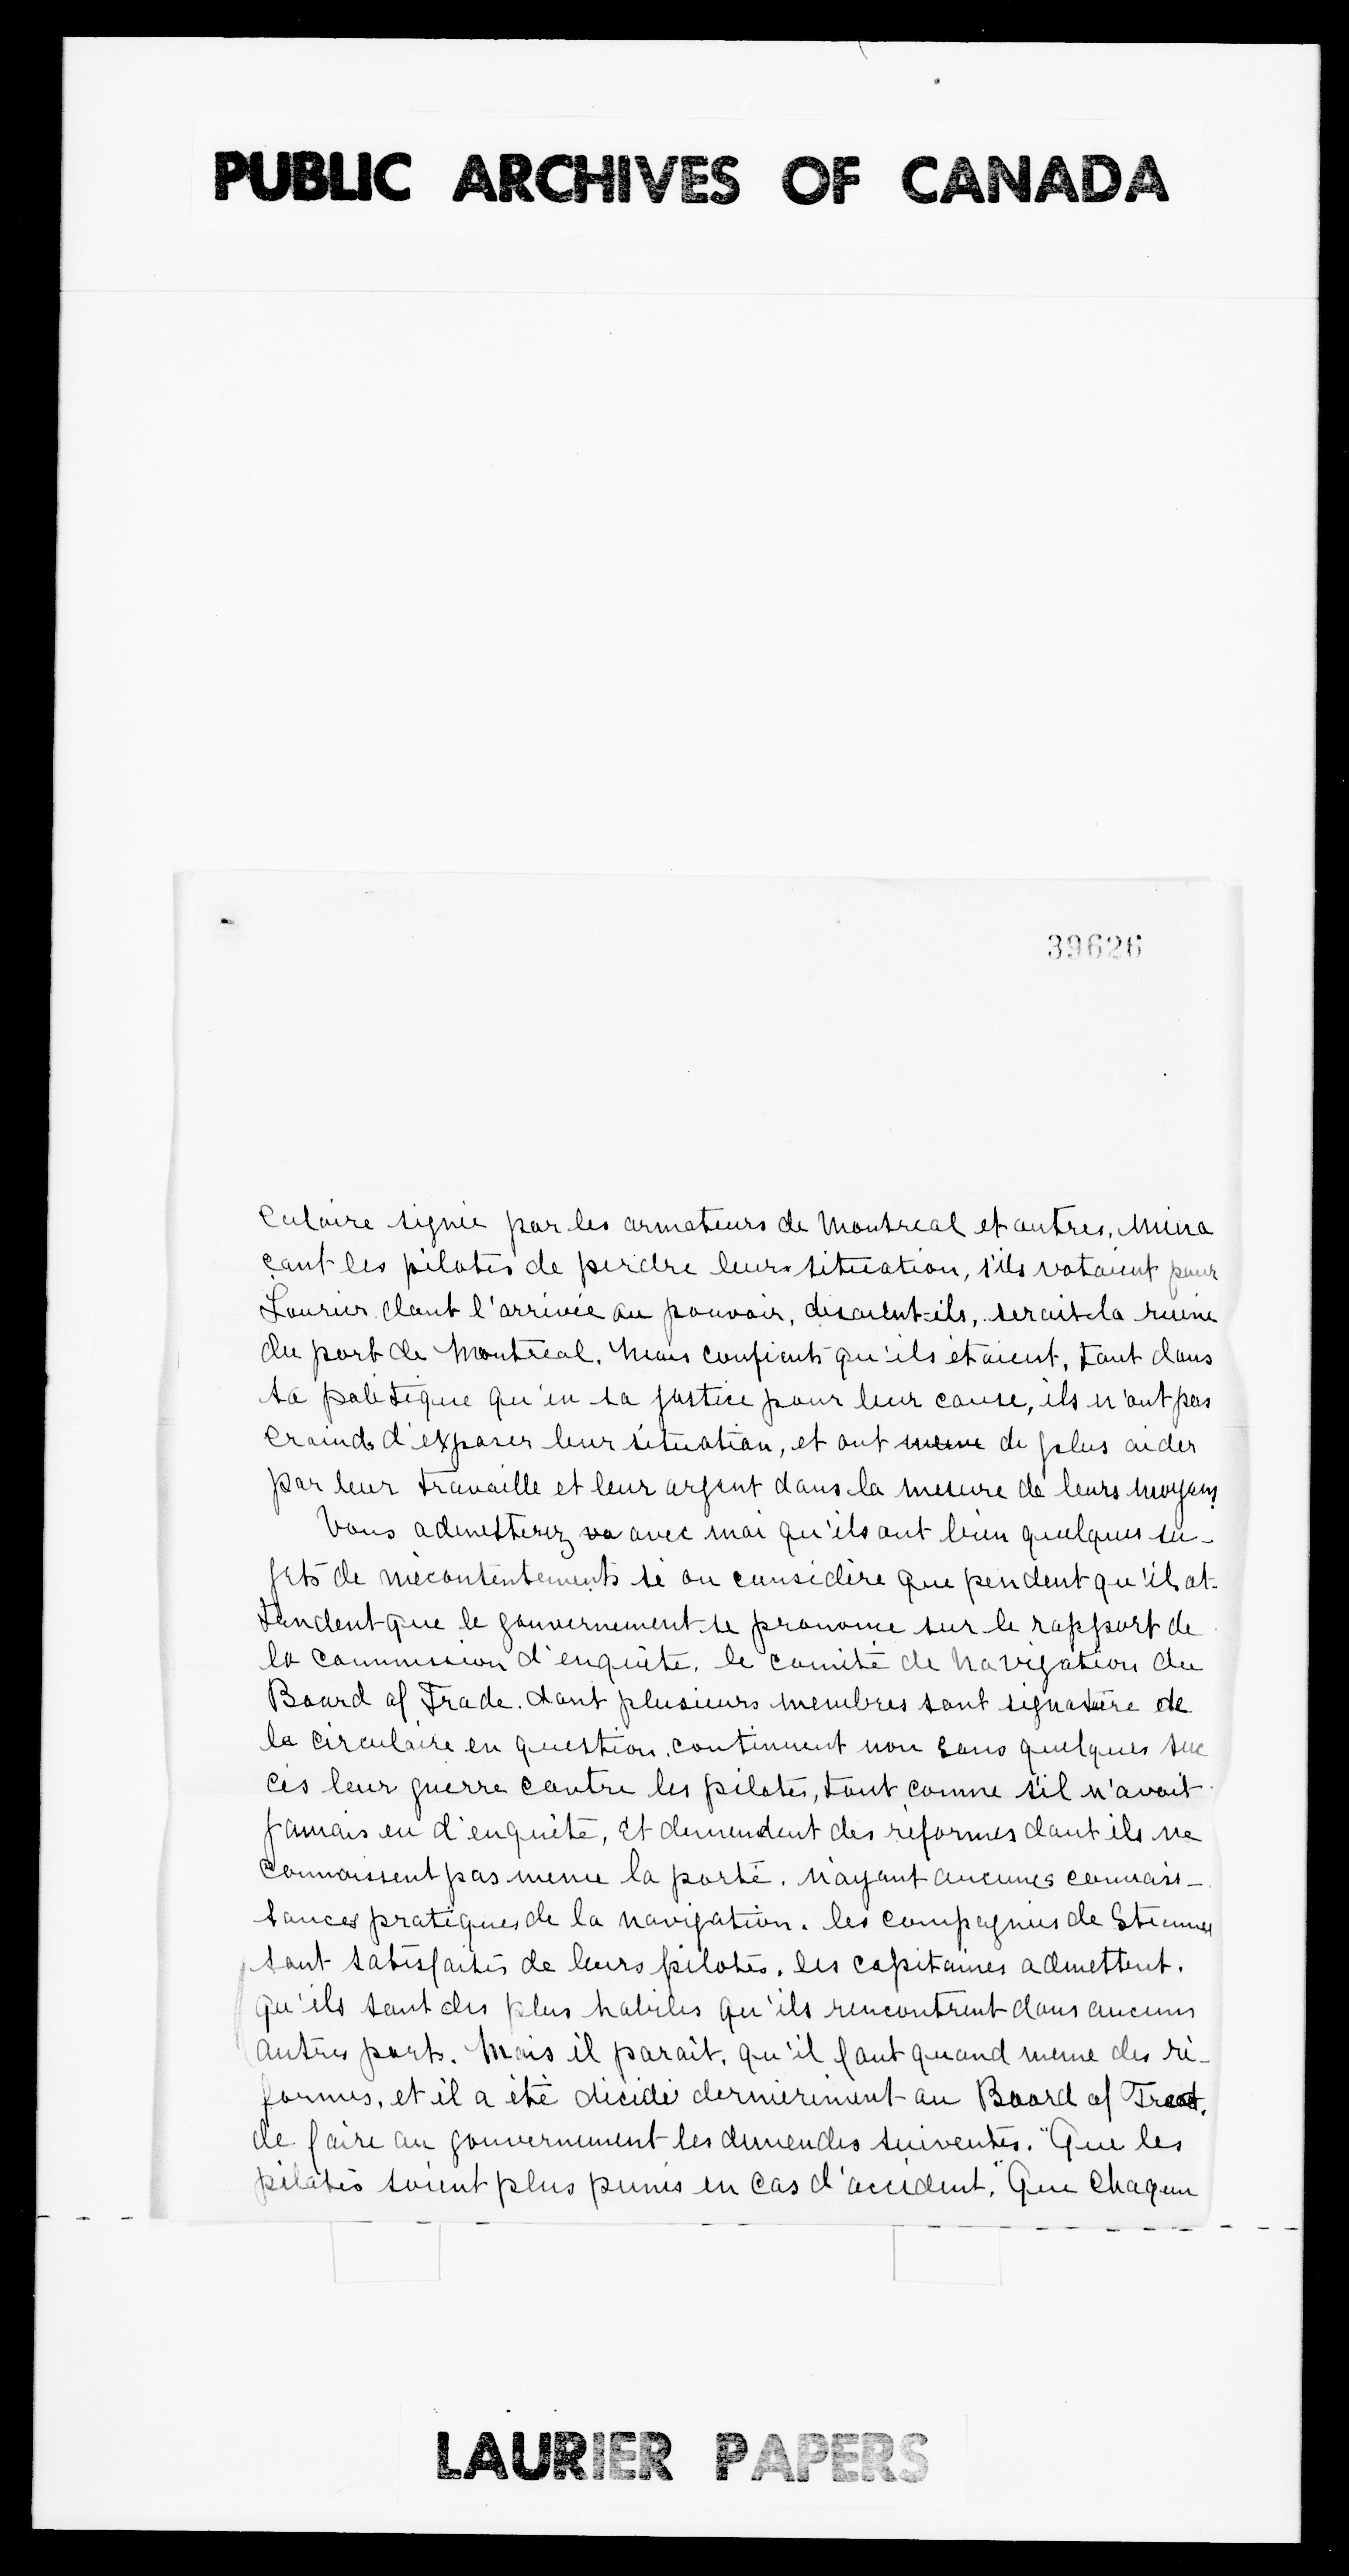 PUBLIC ARCHIVES OF CANADA
39626
culaire signée par les armateurs de Montréal et autres, mena
çant les pilotes de perdre leurs situation, s'ils votaient pour
Laurier dont l'arrivée au pouvoir, disaient-ils, serait la ruine
du port de Montréal. Mais confients qu'ils étaient, tant dans
sa politique qu'en sa justice pour leur cause, ils n'ont pas
craind d'exposer leur situation, et ont meme de plus aider
par leur travaille et leur argent dans la mesure de leurs moyens
Vous admetterez vo avec moi qu'ils ont bien quelques su-
jets de mécontentements si on considère que pendent qu'ils at-
tendent que le gouvernement se pronome sur le rapport de
la commission d'enquête, le comité de Navigation du
Board of Trade. dont plusieurs membres sont signatère de
la circulaire en question, continuent non sans quelques suc
cès leur guerre contre les pilotes, tout comme s'il n'avait
jamais eu d'enquête, et demendent des réformes dont ils ne
connaissent pas meme la porté. N'ayant aucunes connais-
sances pratiques de la navigation. les compagnies de Steamers
sont satisfaites de leurs pilotes. les capitaines admettent.
qu'ils sont des plus habiles qu'ils rencontrent dans aucuns
autres ports. Mais il parait, qu'il faut quand meme des ré-
formes, et il a été décidé dernièrement au Board of Tread.
de faire au gouvernement les demendes suiventes. "Que les
pilotes soient plus punis en cas d'accident." Que chaqun
LAURIER PAPERS